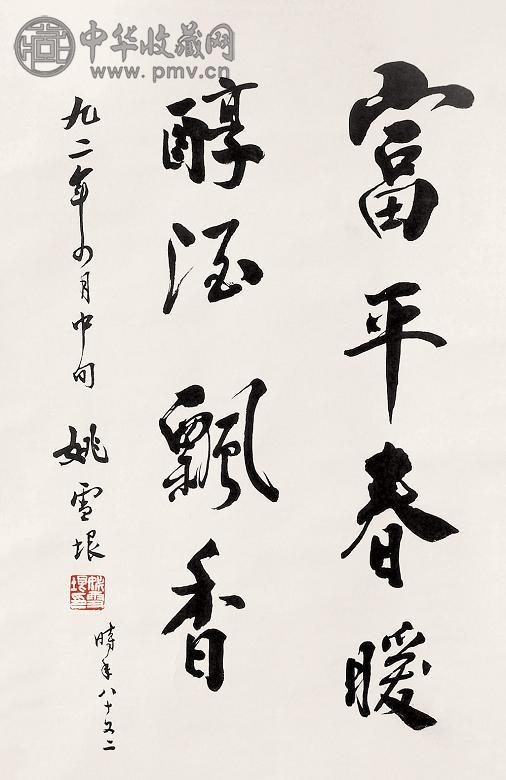 中华收藏网
www.pmv.cn
富平春暖
醇酒飘香
九二年四月中旬 姚雪垠
时年八十又二